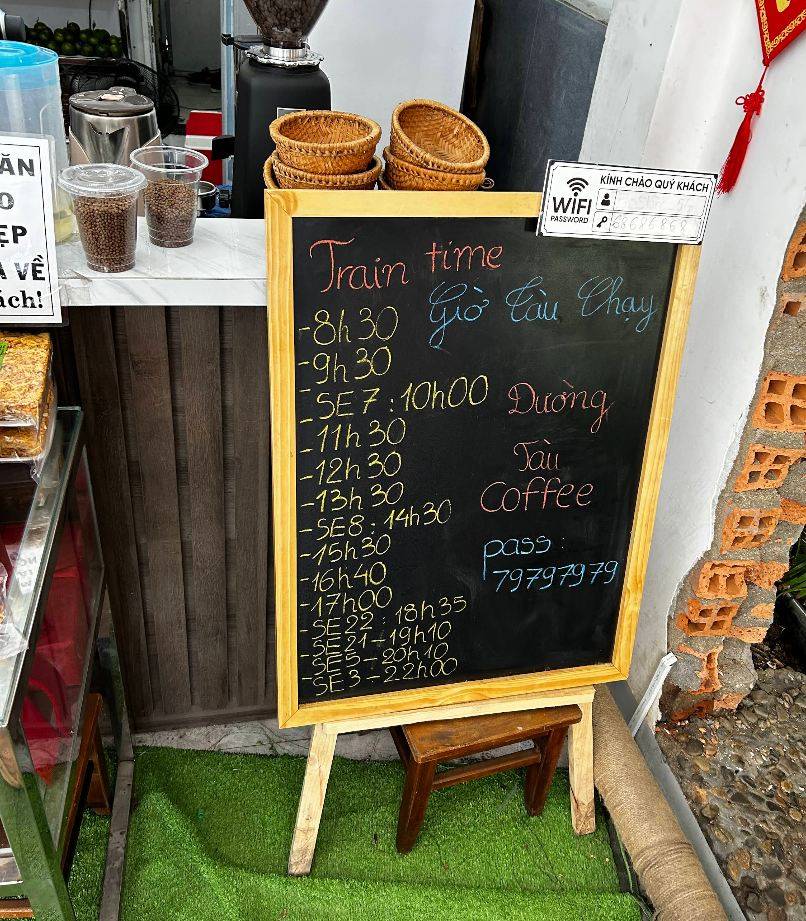 ĂN
O
ẸP
À VỀ
ách!
KÍNH CHÀO QUÝ KHÁCH
WiFi
PASSWORD
Train time
Giờ Tàu Chạy
-8h30
-9h30
-SE7:10h00
-11h30
-12h30
-13h30
-SE8:14h30
-15h30
-16h40
-17h00
-SE22:18h35
-SE21-19h10
-SE5-20h10
-SE3-22h00
Đường
Tàu
Coffee
pass:
79797979